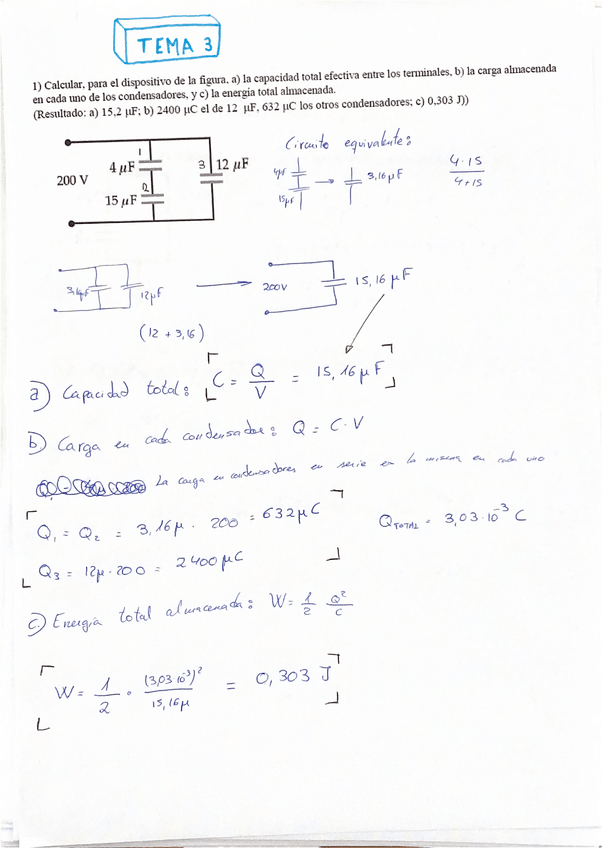 TEMA 3
1) Calcular, para el dispositivo de la figura, a) la capacidad total efectiva entre los terminales, b) la carga almacenada
en cada uno de los condensadores, y c) la energía total almacenada.
(Resultado: a) 15,2 μF; b) 2400 μC el de 12 μF, 632 μC los otros condensadores; c) 0,303 J))
Circuito equivalente:
1
4 μF
200 V
2
15 μF
3
12 μF
4μF
15μF
3,16 μF
4·15
4+15
3,16μF
12μF
200V
15,16 μF
(12 + 3,16)
a) Capacidad total: C = Q/V = 15,16 μF
b) Carga en cada condensador: Q = C·V
La carga en condensadores en serie es la misma en cada uno
Q1 = Q2 = 3,16μ · 200 = 632μC
QTOTAL = 3,03·10^-3 C
Q3 = 12μ·200 = 2400μC
c) Energía total almacenada: W = 1/2 Q²/C
W = 1/2 · (3,03 10^-3)²/15,16μ = 0,303 J